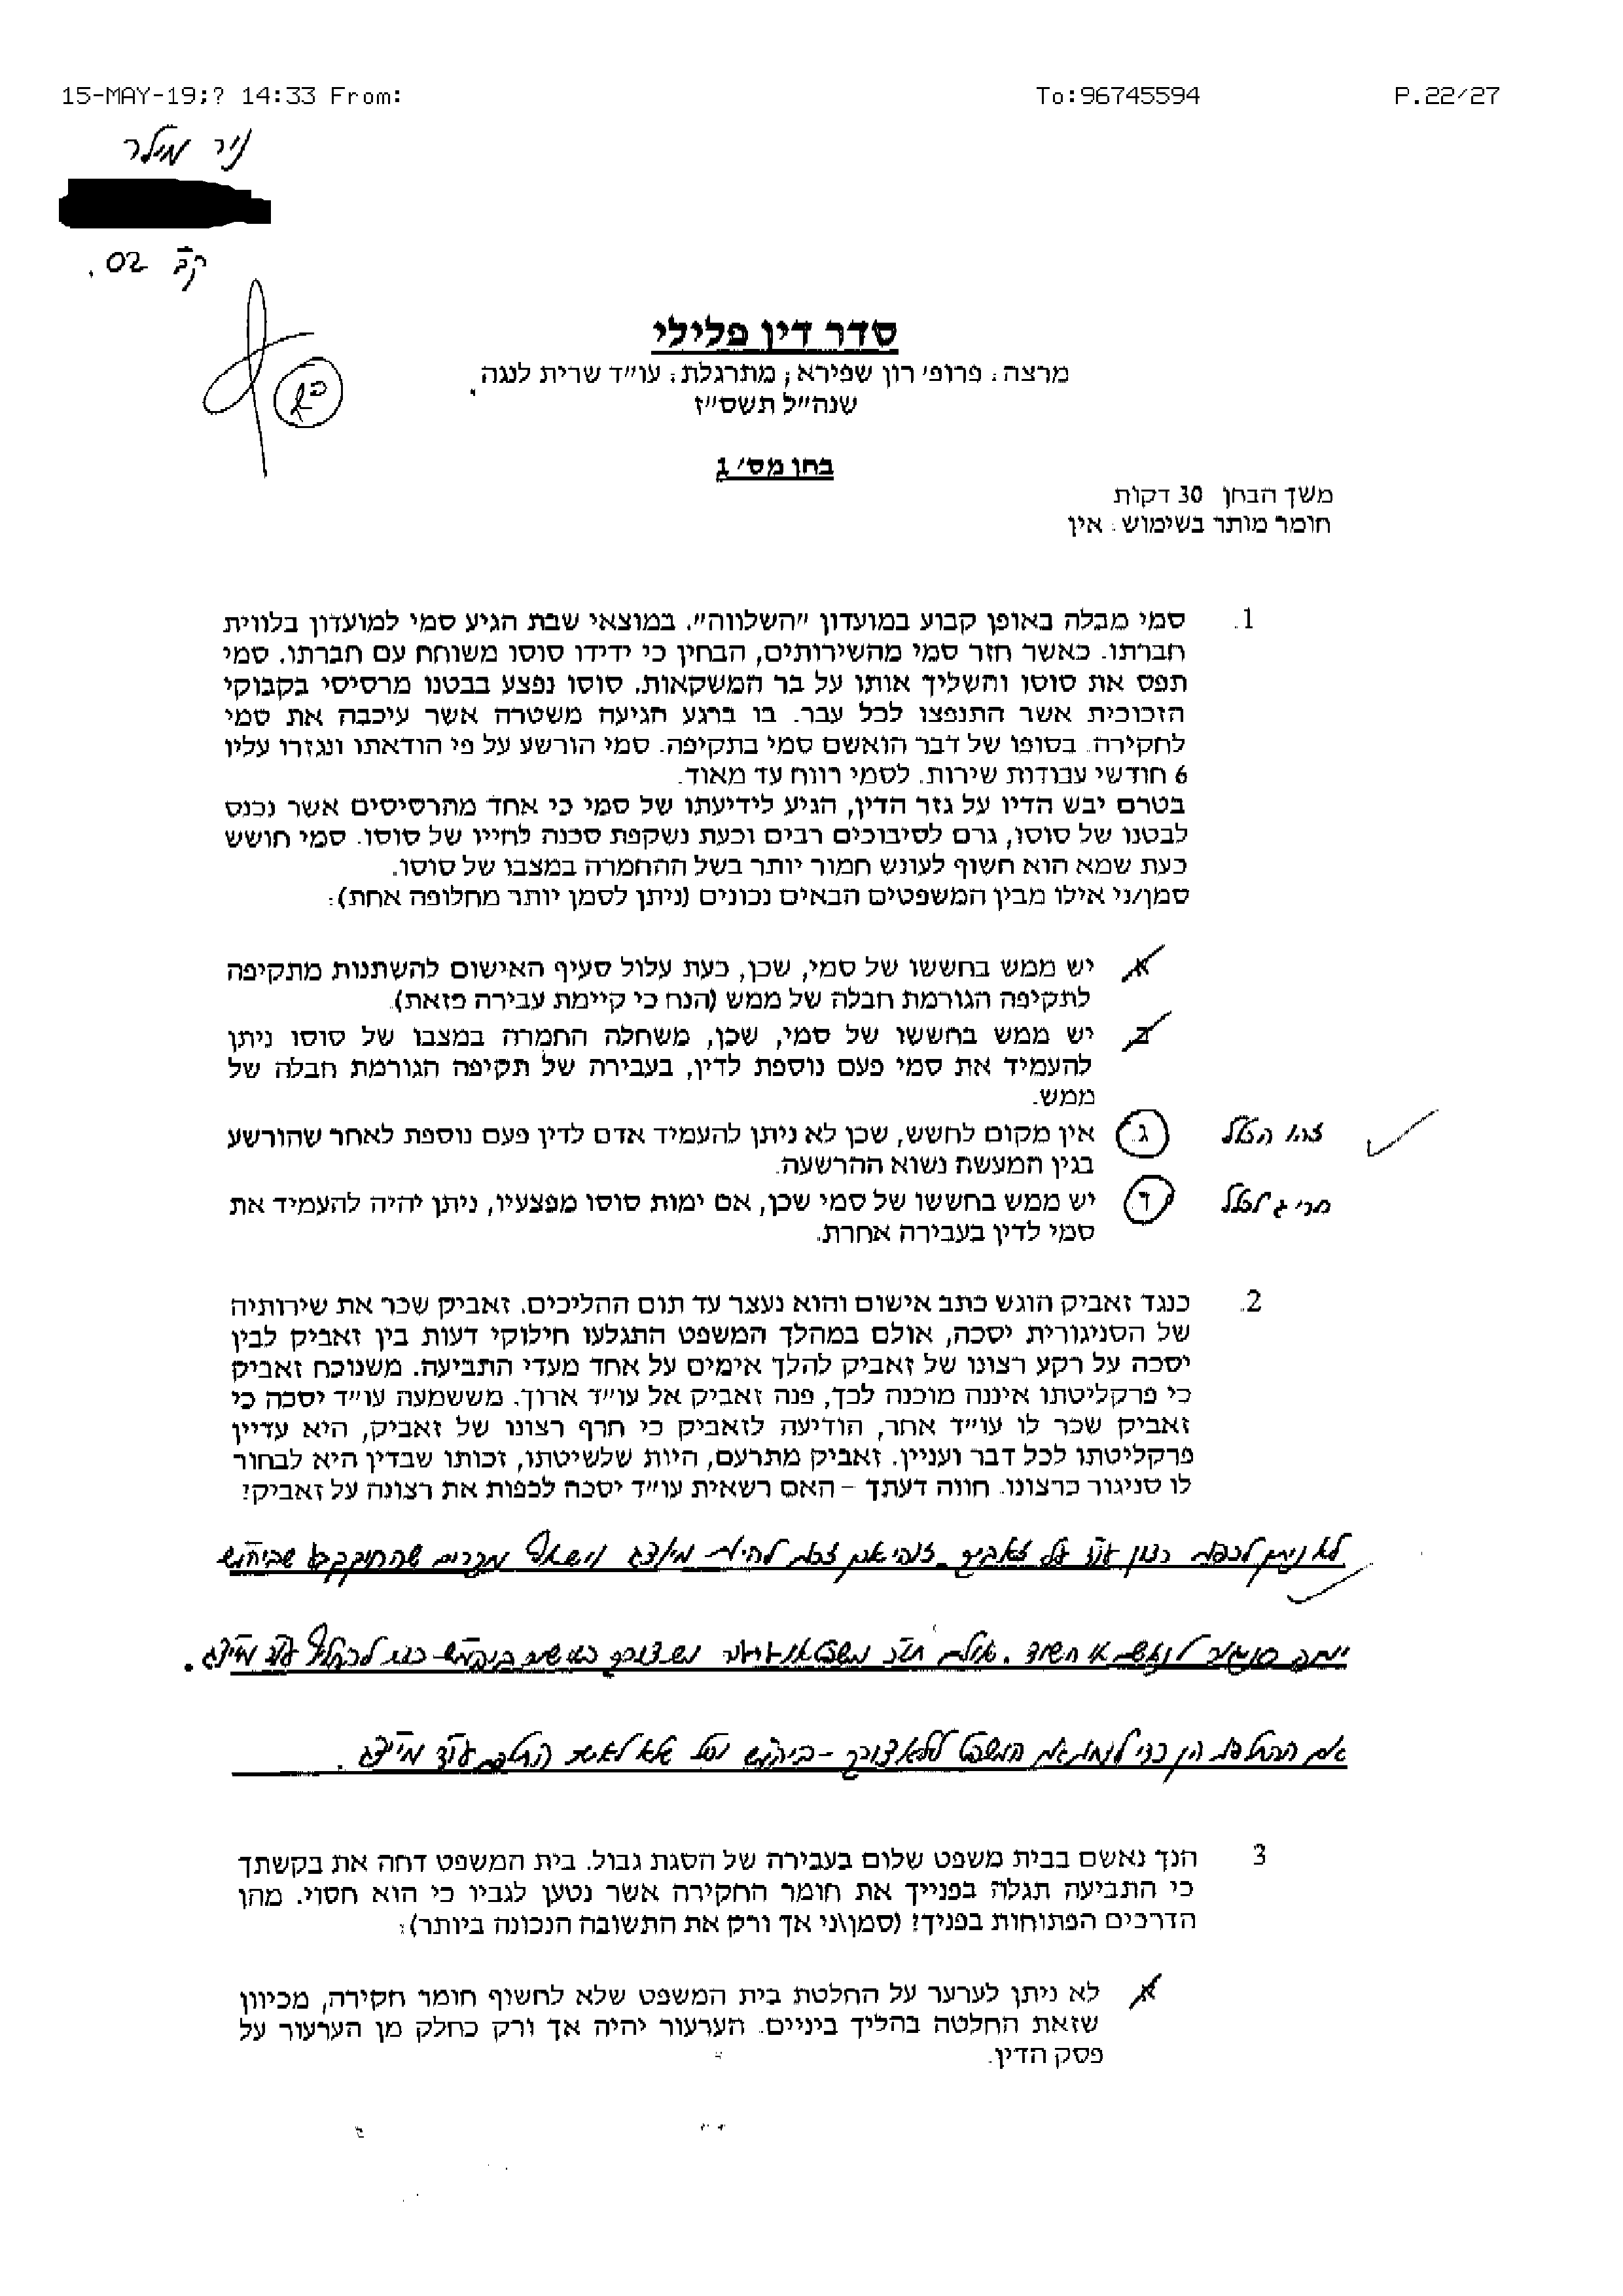 15-MAY-19;? 14:33 From: To:96745594 P.22/27
ניר מילר
קב' 02.
סדר דין פלילי
מרצה: פרופ' רון שפירא; מתרגלת: עו"ד שרית לנגה.
שנה"ל תשס"ז
בחן מס' 1
משך הבחן 30 דקות
חומר מותר בשימוש: אין
1. סמי מבלה באופן קבוע במועדון "השלווה". במוצאי שבת הגיע סמי למועדון בלווית
חברתו. כאשר חזר סמי מהשירותים, הבחין כי ידידו סוסו משוחח עם חברתו. סמי
תפס את סוסו והשליך אותו על בר המשקאות. סוסו נפצע בבטנו מרסיסי בקבוקי
הזכוכית אשר התנפצו לכל עבר. בו ברגע הגיעה משטרה אשר עיכבה את סמי
לחקירה. בסופו של דבר הואשם סמי בתקיפה. סמי הורשע על פי הודאתו ונגזרו עליו
6 חודשי עבודות שירות. לסמי רווח עד מאוד.
בטרם יבש הדיו על גזר הדין, הגיע לידיעתו של סמי כי אחד מהרסיסים אשר נכנס
לבטנו של סוסו, גרם לסיבוכים רבים וכעת נשקפת סכנה לחייו של סוסו. סמי חושש
כעת שמא הוא חשוף לעונש חמור יותר בשל ההחמרה במצבו של סוסו.
סמן/ני אילו מבין המשפטים הבאים נכונים (ניתן לסמן יותר מחלופה אחת):
א. יש ממש בחששו של סמי, שכן, כעת עלול סעיף האישום להשתנות מתקיפה
לתקיפה הגורמת חבלה של ממש (הנח כי קיימת עבירה כזאת).
ב. יש ממש בחששו של סמי, שכן, משחלה החמרה במצבו של סוסו ניתן
להעמיד את סמי פעם נוספת לדין, בעבירה של תקיפה הגורמת חבלה של
ממש.
זהו הכלל ג. אין מקום לחשש, שכן לא ניתן להעמיד אדם לדין פעם נוספת לאחר שהורשע
בגין המעשה נשוא ההרשעה.
חריג לכלל ד. יש ממש בחששו של סמי שכן, אם ימות סוסו מפצעיו, ניתן יהיה להעמיד את
סמי לדין בעבירה אחרת.
2. כנגד זאביק הוגש כתב אישום והוא נעצר עד תום ההליכים. זאביק שכר את שירותיה
של הסניגורית יסכה, אולם במהלך המשפט התגלעו חילוקי דעות בין זאביק לבין
יסכה על רקע רצונו של זאביק להלך אימים על אחד מעדי התביעה. משנוכח זאביק
כי פרקליטתו איננה מוכנה לכך, פנה זאביק אל עו"ד ארוך. מששמעה עו"ד יסכה כי
זאביק שכר לו עו"ד אחר, הודיעה לזאביק כי חרף רצונו של זאביק, היא עדיין
פרקליטתו לכל דבר ועניין. זאביק מתרעם, היות שלשיטתו, זכותו שבדין היא לבחור
לו סניגור כרצונו. חווה דעתך – האם רשאית עו"ד יסכה לכפות את רצונה על זאביק?
לא ניתן לכפות רצון עו"ד על זאביק. זכות להיות מיוצג מקרים שביהמ"ש
ימנה סנגור לנאשם או חשוד. אולם כדי להחליף עו"ד מייצג.
אם ההחלפה הן כדי המשפט ללא צורך - ביהמ"ש יכול שלא לאשר החלפת עו"ד מייצג.
3 הנך נאשם בבית משפט שלום בעבירה של הסגת גבול. בית המשפט דחה את בקשתך
כי התביעה תגלה בפנייך את חומר החקירה אשר נטען לגביו כי הוא חסוי. מהן
הדרכים הפתוחות בפניך? (סמן\ני אך ורק את התשובה הנכונה ביותר):
א. לא ניתן לערער על החלטת בית המשפט שלא לחשוף חומר חקירה, מכיוון
שזאת החלטה בהליך ביניים. הערעור יהיה אך ורק כחלק מן הערעור על
פסק הדין.